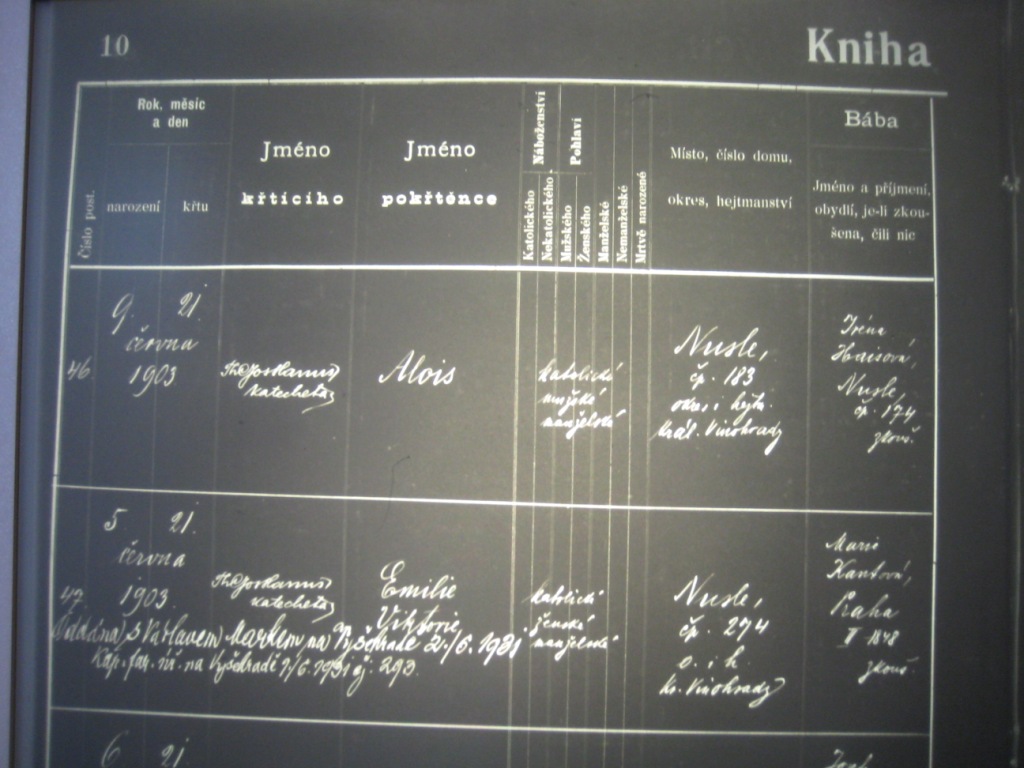 10
Kniha
Číslo post.
Rok, měsíc
a den
narození
křtu
Jméno
křticího
Jméno
pokřtěnce
Náboženství
Katolického
Nekatolického
Pohlaví
Mužského
Ženského
Manželské
Nemanželské
Mrtvě narozené
Místo, číslo domu,
okres, hejtmanství
Bába
Jméno a příjmení,
obydlí, je-li zkou-
šena, čili nic
46.
9. 21.
června
1903
katecheta
Alois
katolické
mužské
manželské
Nusle,
čp. 183
okres i hejtm.
Král. Vinohrady
Irena
Nusle,
čp. 174
zkouš.
47.
5. 21.
června
1903
katecheta
Emilie
Viktorie
Oddána s Václavem Markem na Vyšehradě 2./6. 1931
na Vyšehradě 2/6. 1931 čj. 293.
katolické
ženské
manželské
Nusle,
čp. 274
o. i h.
Kr. Vinohrady
Marie
Kantová,
Praha
zkouš.
6 21.